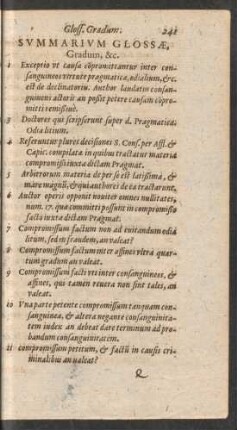 Gloss. Gradum. 241
SVMMARIVM GLOSSÆ,
Gradum, &c.
1 Exceptio vt causa cōpromittantur inter con-
sanguineos virtute pragmaticæ, odi alium, &c.
est de declinatoriu. Author laudatur consan-
guineus acterit an possit petere causam compro-
mitti remissiuè.
3 Doctores qui scripserunt super d. Pragmatica.
Odia litium.
4 Referuntur plures decisiones S. Cons. per Affl. &
Capic. compilatæ in quibus tractatur materia
compromissi iuxta dictam Pragmat.
5 Arbitrorum materia de per se est latissima, &
mare magnū, & qui authores de ea tractarunt.
6 Auctor operis opponit nouiter omnes nullitates,
num. 17. quæ committi possunt in compromisso
facto iuxta dictam Pragmat.
7 Compromissum factum non ad euitandum odia
litium, sed in fraudem, an valeat?
8 Compromissum factum inter affines vltra quar-
tum gradum an valeat.
9 Compromissum facti vt inter consanguineos, &
affines, qui tamen reuera non sint tales, an
valeat.
10 Vna parte petente compromissum tanquam con-
sanguinea, & altera negante consanguinita-
tem iudex an debeat dare terminum ad pro-
bandum consanguinitatem.
11 compromissum petitum, & factū in causis cri-
minalibus an valeat?
Q